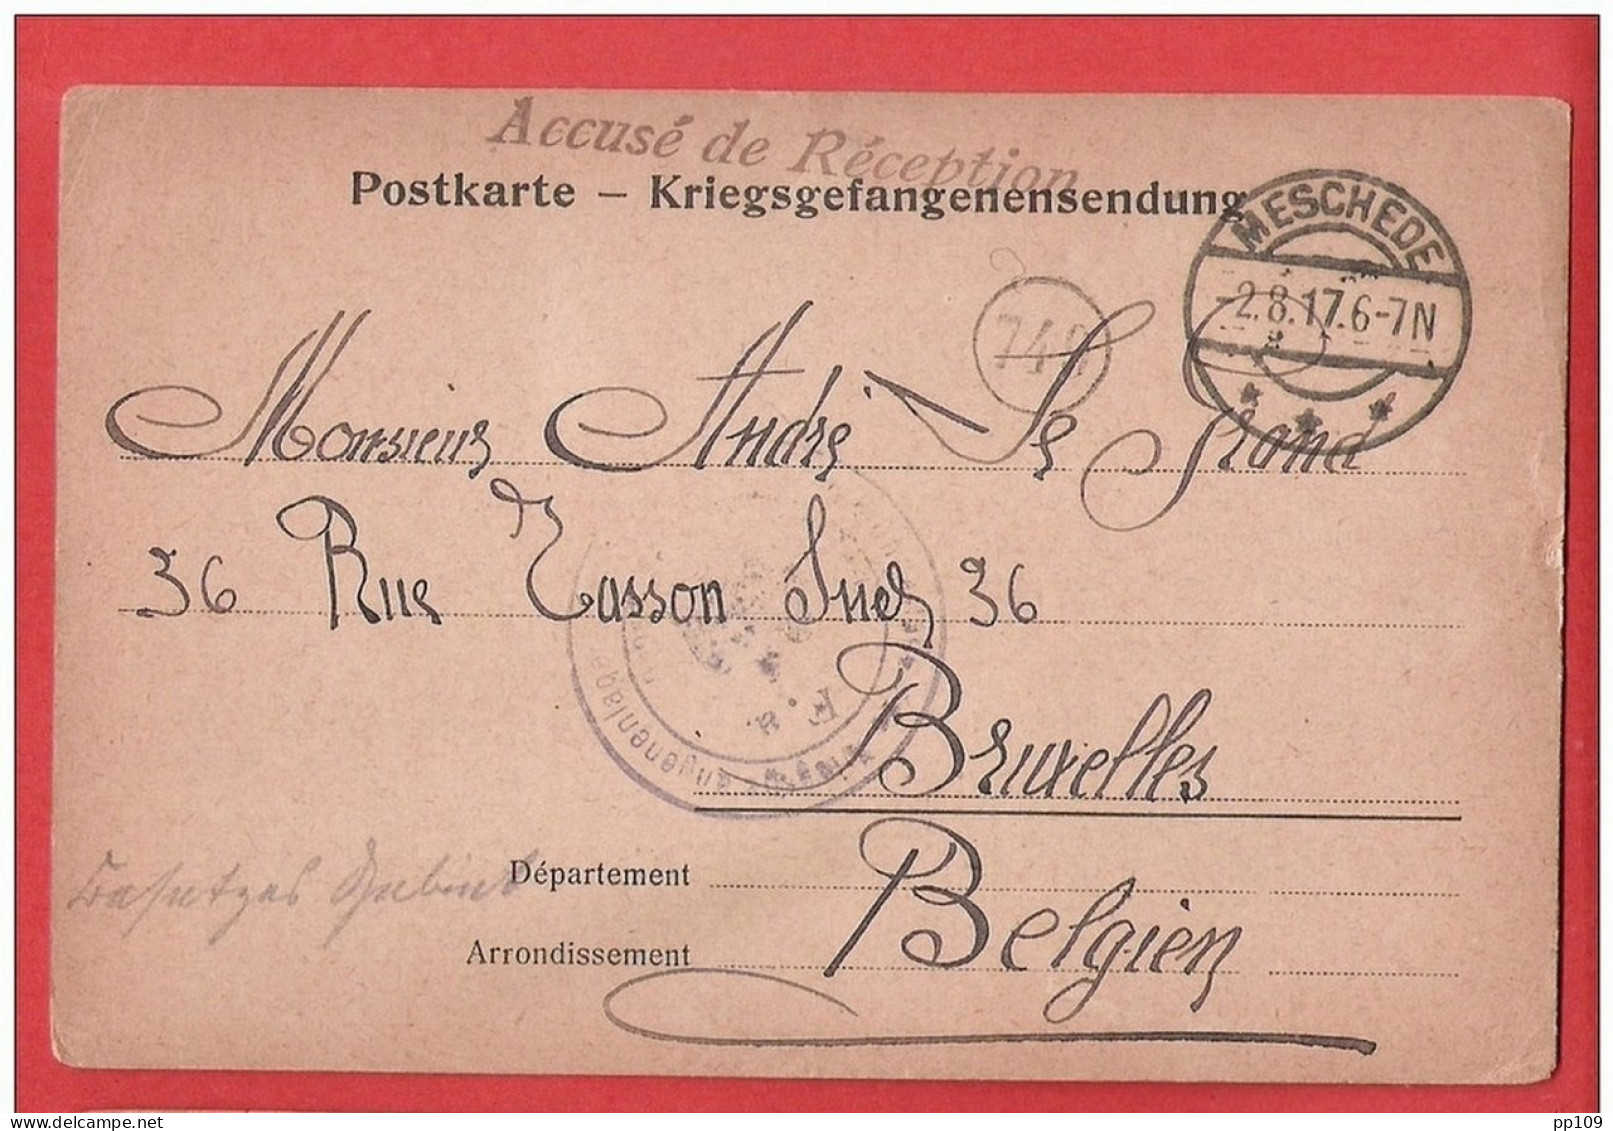 Accusé de Réception
Postkarte – Kriegsgefangenensendung
MESCHEDE
-2.8.17.6-7N
Monsieur André Le Grand
36 Rue Tasson Snel 36
Bruxelles
Département
Belgien
Arrondissement
pp109